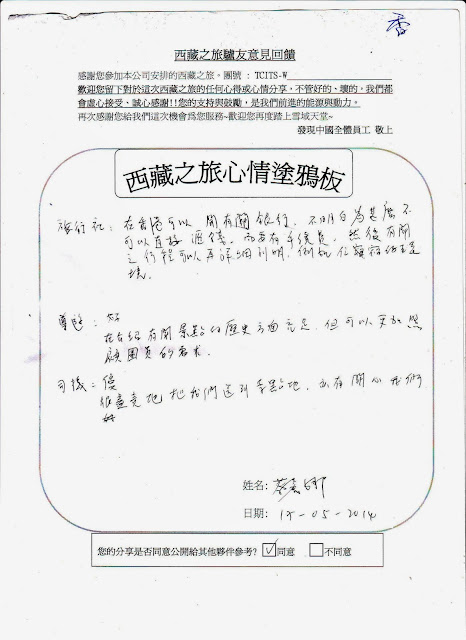 香
西藏之旅驢友意見回饋
感謝您參加本公司安排的西藏之旅。團號：TCITS-W
歡迎您留下對於這次西藏之旅的任何心得或心情分享，不管好的、壞的，我們都
會虛心接受、誠心感謝!!您的支持與鼓勵，是我們前進的能源與動力。
再次感謝您給我們這次機會為您服務~歡迎您再度踏上雪域天堂~
發現中國全體員工 敬上
西藏之旅心情塗鴉板
旅行社：在香港可以 開有關 銀行，不明白為甚麼不
可以直接 匯錢，而要有手續費，然後有關
之行程可以再詳細列明，例如
導遊：好
在介紹有關景點的歷史方面充足，但可以更加照
顧團員的需求。
司機：優
很盡責地把我們送到景點地，也有關心我們
姓名:
日期: 15-05-2014
您的分享是否同意公開給其他夥伴參考? ☑同意 □不同意